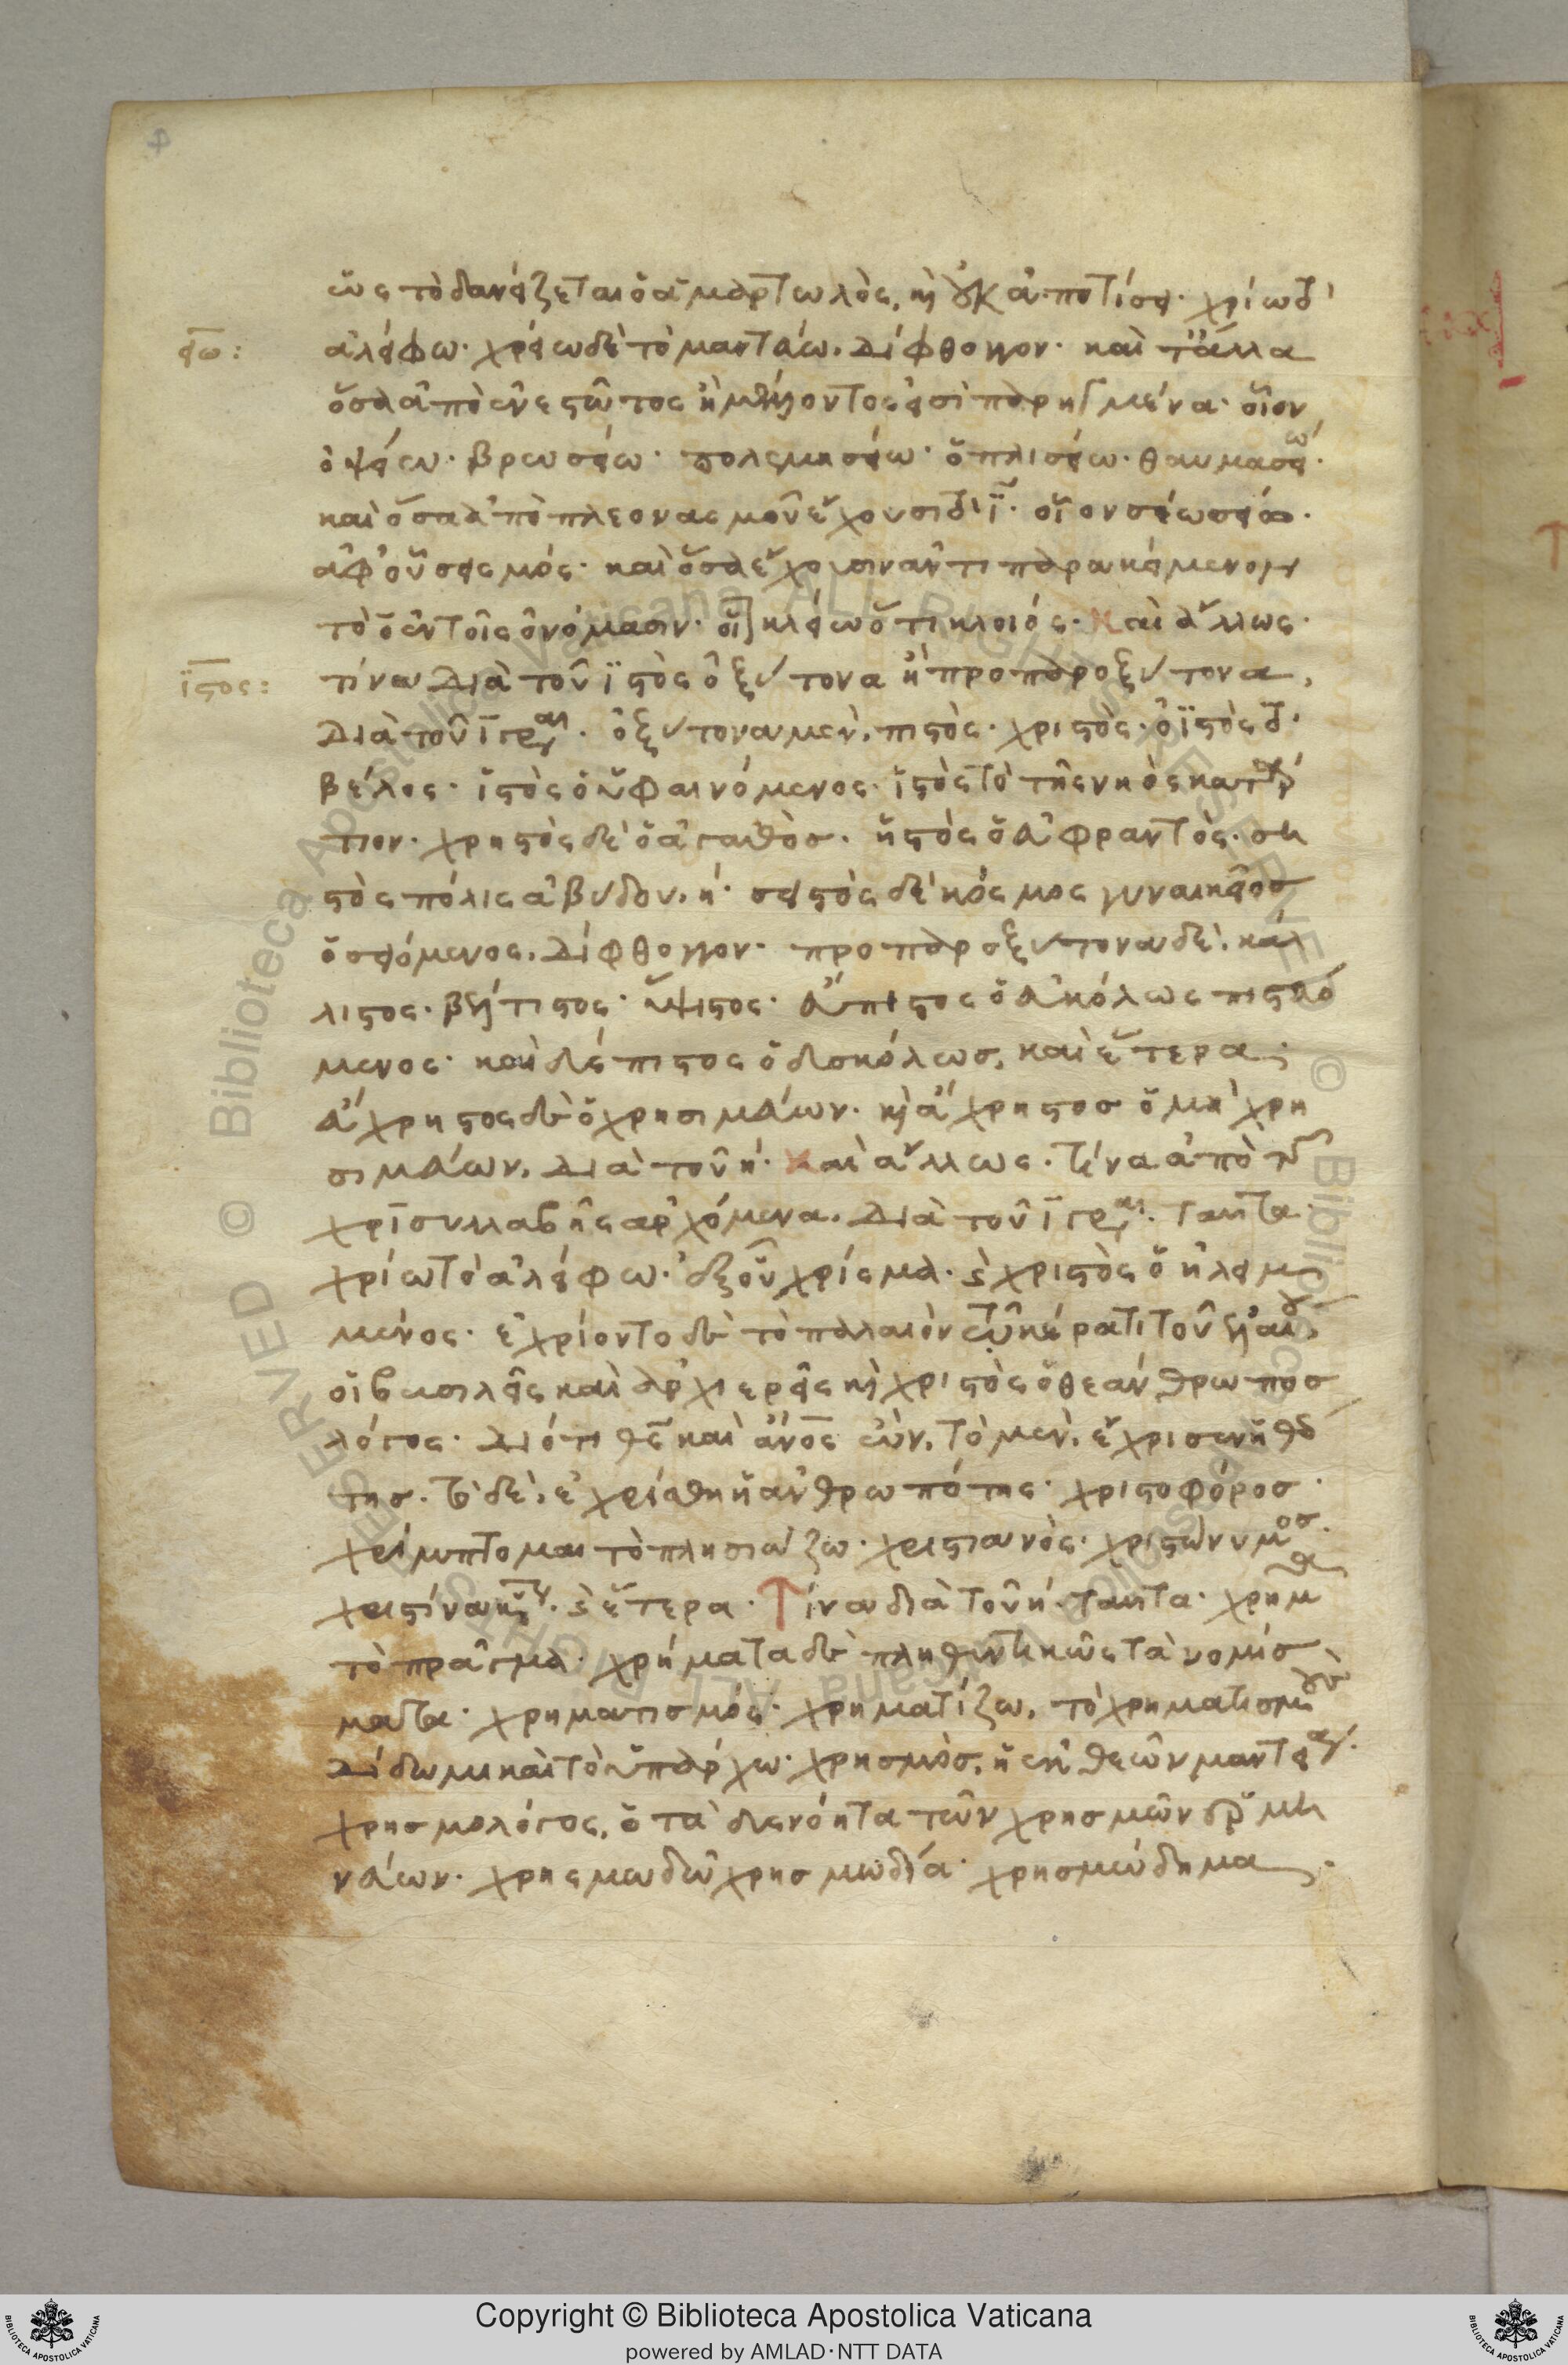 ὡς τὸ δανείζεται ὁ ἁμαρτωλὸς, κὴ οὐκ ἀποτίσει· χρίω δ
ειω:
ἀλείφω· χρείω δὲ τὸ μαντεύω, δίφθογγον· καὶ τἄλλα
ὅσα ἀπὸ ἐνεστῶτος ἢ μέλλοντος εἰσὶ παρηγμένα· οἷον
ὀψείω· βρωσείω· πολεμησείω· ὁπλισείω· θαυμασείω·
καὶ ὅσα ἀπὸ πλεονασμοῦ ἔχουσι δι ϊ· οἷον σείω σείσω·
ἀφ' οὗ σεισμός· καὶ ὅσα ἔχουσιν ἀντιπαρακείμενον
τὸ ο ἐν τοῖς ὀνόμασιν· οἷον κλείω ὅτι κλοιός· Καὶ ἄλλως·
ϊστος:
τίνα διὰ τοῦ ϊστος ὀξύτονα ἢ προπαροξύτονα,
διὰ τοῦ ι γράφεται· ὀξύτονα μὲν, πιστὸς· χριστὸς· ὀϊστὸς δ
βέλος· ἱστὸς ὁ ὑφαινόμενος· ἱστὸς τὸ τῆς νηὸς κατάρ
τιον· χρηστὸς δὲ ὁ ἀγαθὸσ· ἡστὸς ὁ εὐφραντὸς· ση
στὸς πόλις ἀβύδου, η· σειστὸς δὲ κόσμος γυναικεῖοσ
ὁ σειόμενος, δίφθογγον· προπαροξύτονα δὲ, κάλ
λιστος· βέλτιστος· ὕψιστος· εὔπιστος ὁ εὐκόλως πιστευό
μενος· καὶ δύσπιστος ὁ δυσκόλωσ, καὶ ἕτερα·
εὔχρηστος δὲ ὁ χρησιμεύων· κὴ ἄχρηστοσ ὁ μὴ χρη
σιμεύων, διὰ τοῦ η· Καὶ ἄλλως· τίνα ἀπὸ τῆς
χρι συλλαβῆς ἀρχόμενα, διὰ τοῦ ι γράφεται· ταῦτα
χρίω τὸ ἀλείφω· ἐξ οὗ χρίσμα· ϛ χριστὸς ὁ ἠλειμ
μένος· ἐχρίοντο δὲ τὸ παλαιὸν ἐν τῷ κέρατι τοῦ ἐλαίου
οἱ βασιλεῖς καὶ ἀρχιερεῖς κὴ χριστὸς ὁ θεάνθρωποσ
λόγος· διότι θς καὶ ἄνος ὢν, τὸ μὲν, ἔχρισεν ἡ θεό
τησ· τὸ δὲ, ἐχρίσθη ἡ ἀνθρωπότης· χριστοφόροσ·
χρίμπτομαι τὸ πλησιάζω· χριστιανὸς· χριστώνυμοσ·
ϛ ἕτερα· Τίνα διὰ τοῦ η· ταῦτα· χρῆμα
τὸ πρᾶγμα· χρήματα δὲ πληθυντικῶς τὰ νομίσ
ματα· χρηματισμός· χρηματίζω, τὸ χρηματισμὸν
δίδωμι καὶ τὸ ὑπάρχω· χρησμὸσ, ἡ ἐκ θεῶν μαντεία·
χρησμολόγος, ὁ τὰ δυσνόητα τῶν χρησμῶν ἑρμη
νεύων· χρησμωδῶ χρησμωδία· χρησμώδημα
Copyright © Biblioteca Apostolica Vaticana
powered by AMLAD·NTT DATA